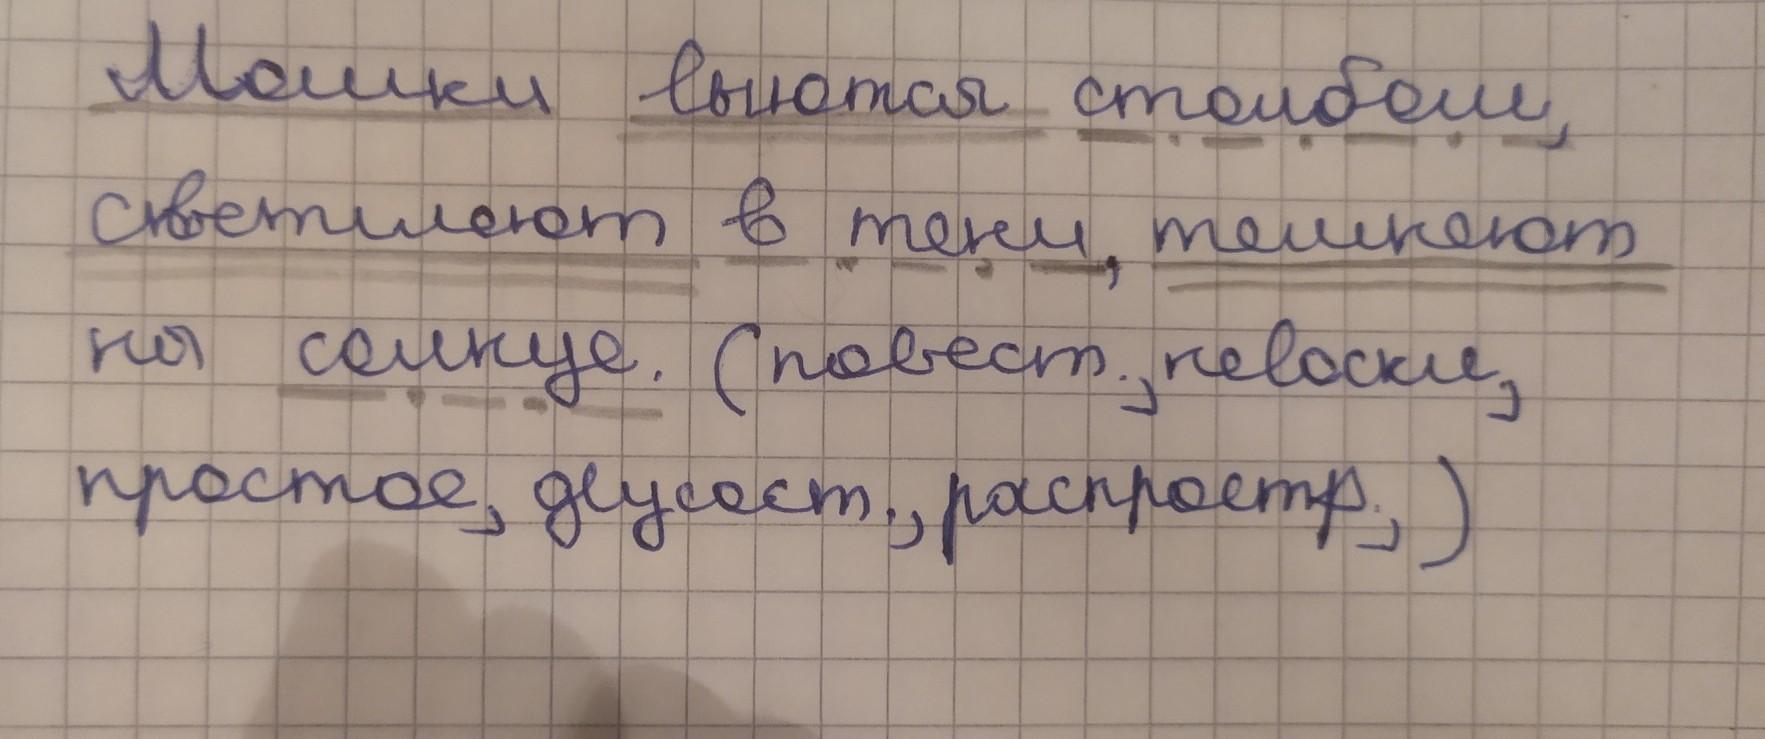 Мошки вьются столбом,
светлеют в тени, темнеют
на солнце. (повест., невоскл,
простое, двусост., распростр.,)